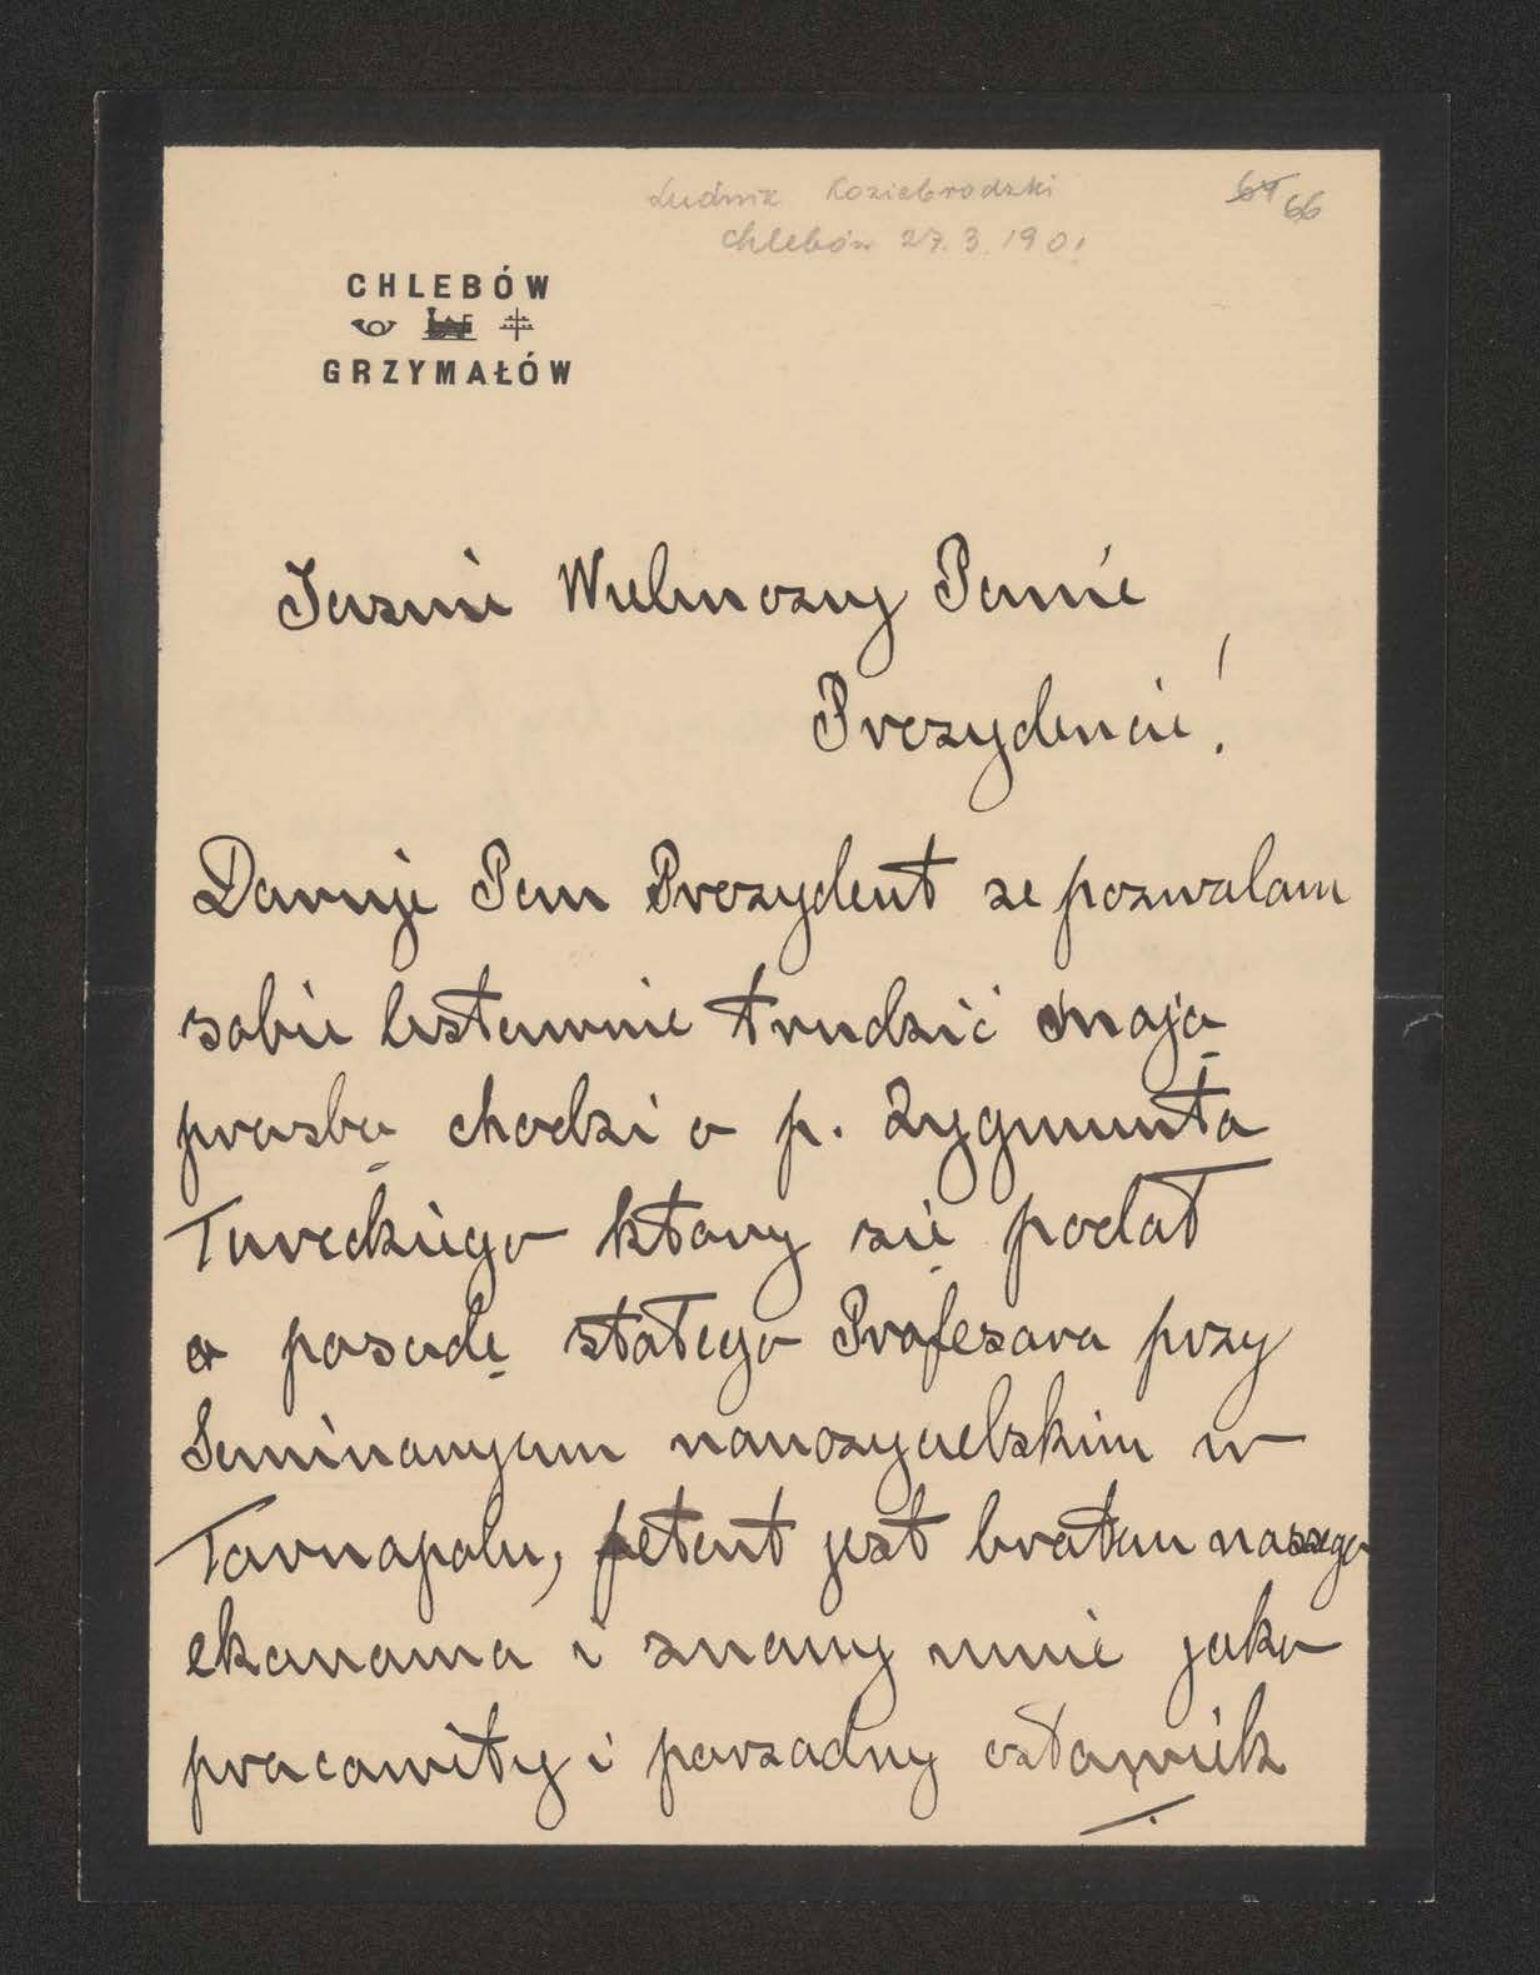 Ludwik Koziebrodzki
64 66
Chlebów 27.3.1901
CHLEBÓW
GRZYMAŁÓW
Jasnie Wielmozny Panie
Prezydencie!
Daruje Pan Prezydent ze pozwalam
sobie listownie trudzić moją
prosbą chodzi o p. Zygmunta
Tureckiego ktory się podał
o posadę stałego Profesora przy
Seminaryum nauczycielskim w
Tarnopolu, petent jest bratem naszego
ekonoma i znany mnie jako
pracowity i porzadny człowiek